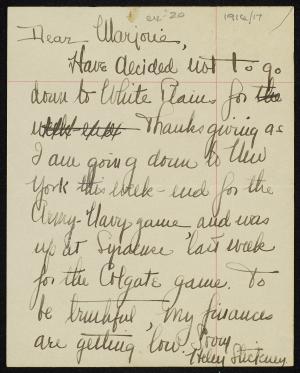 ex '20 1916/17
Dear Marjorie,
Have decided not to go
down to White Plains for the
week-end Thanksgiving as
I am going down to New
York this week-end for the
Army-Navy game, and was
up at Syracuse last week
for the Colgate game. To
be truthful, my finances
are getting low.
Helen Stickney.